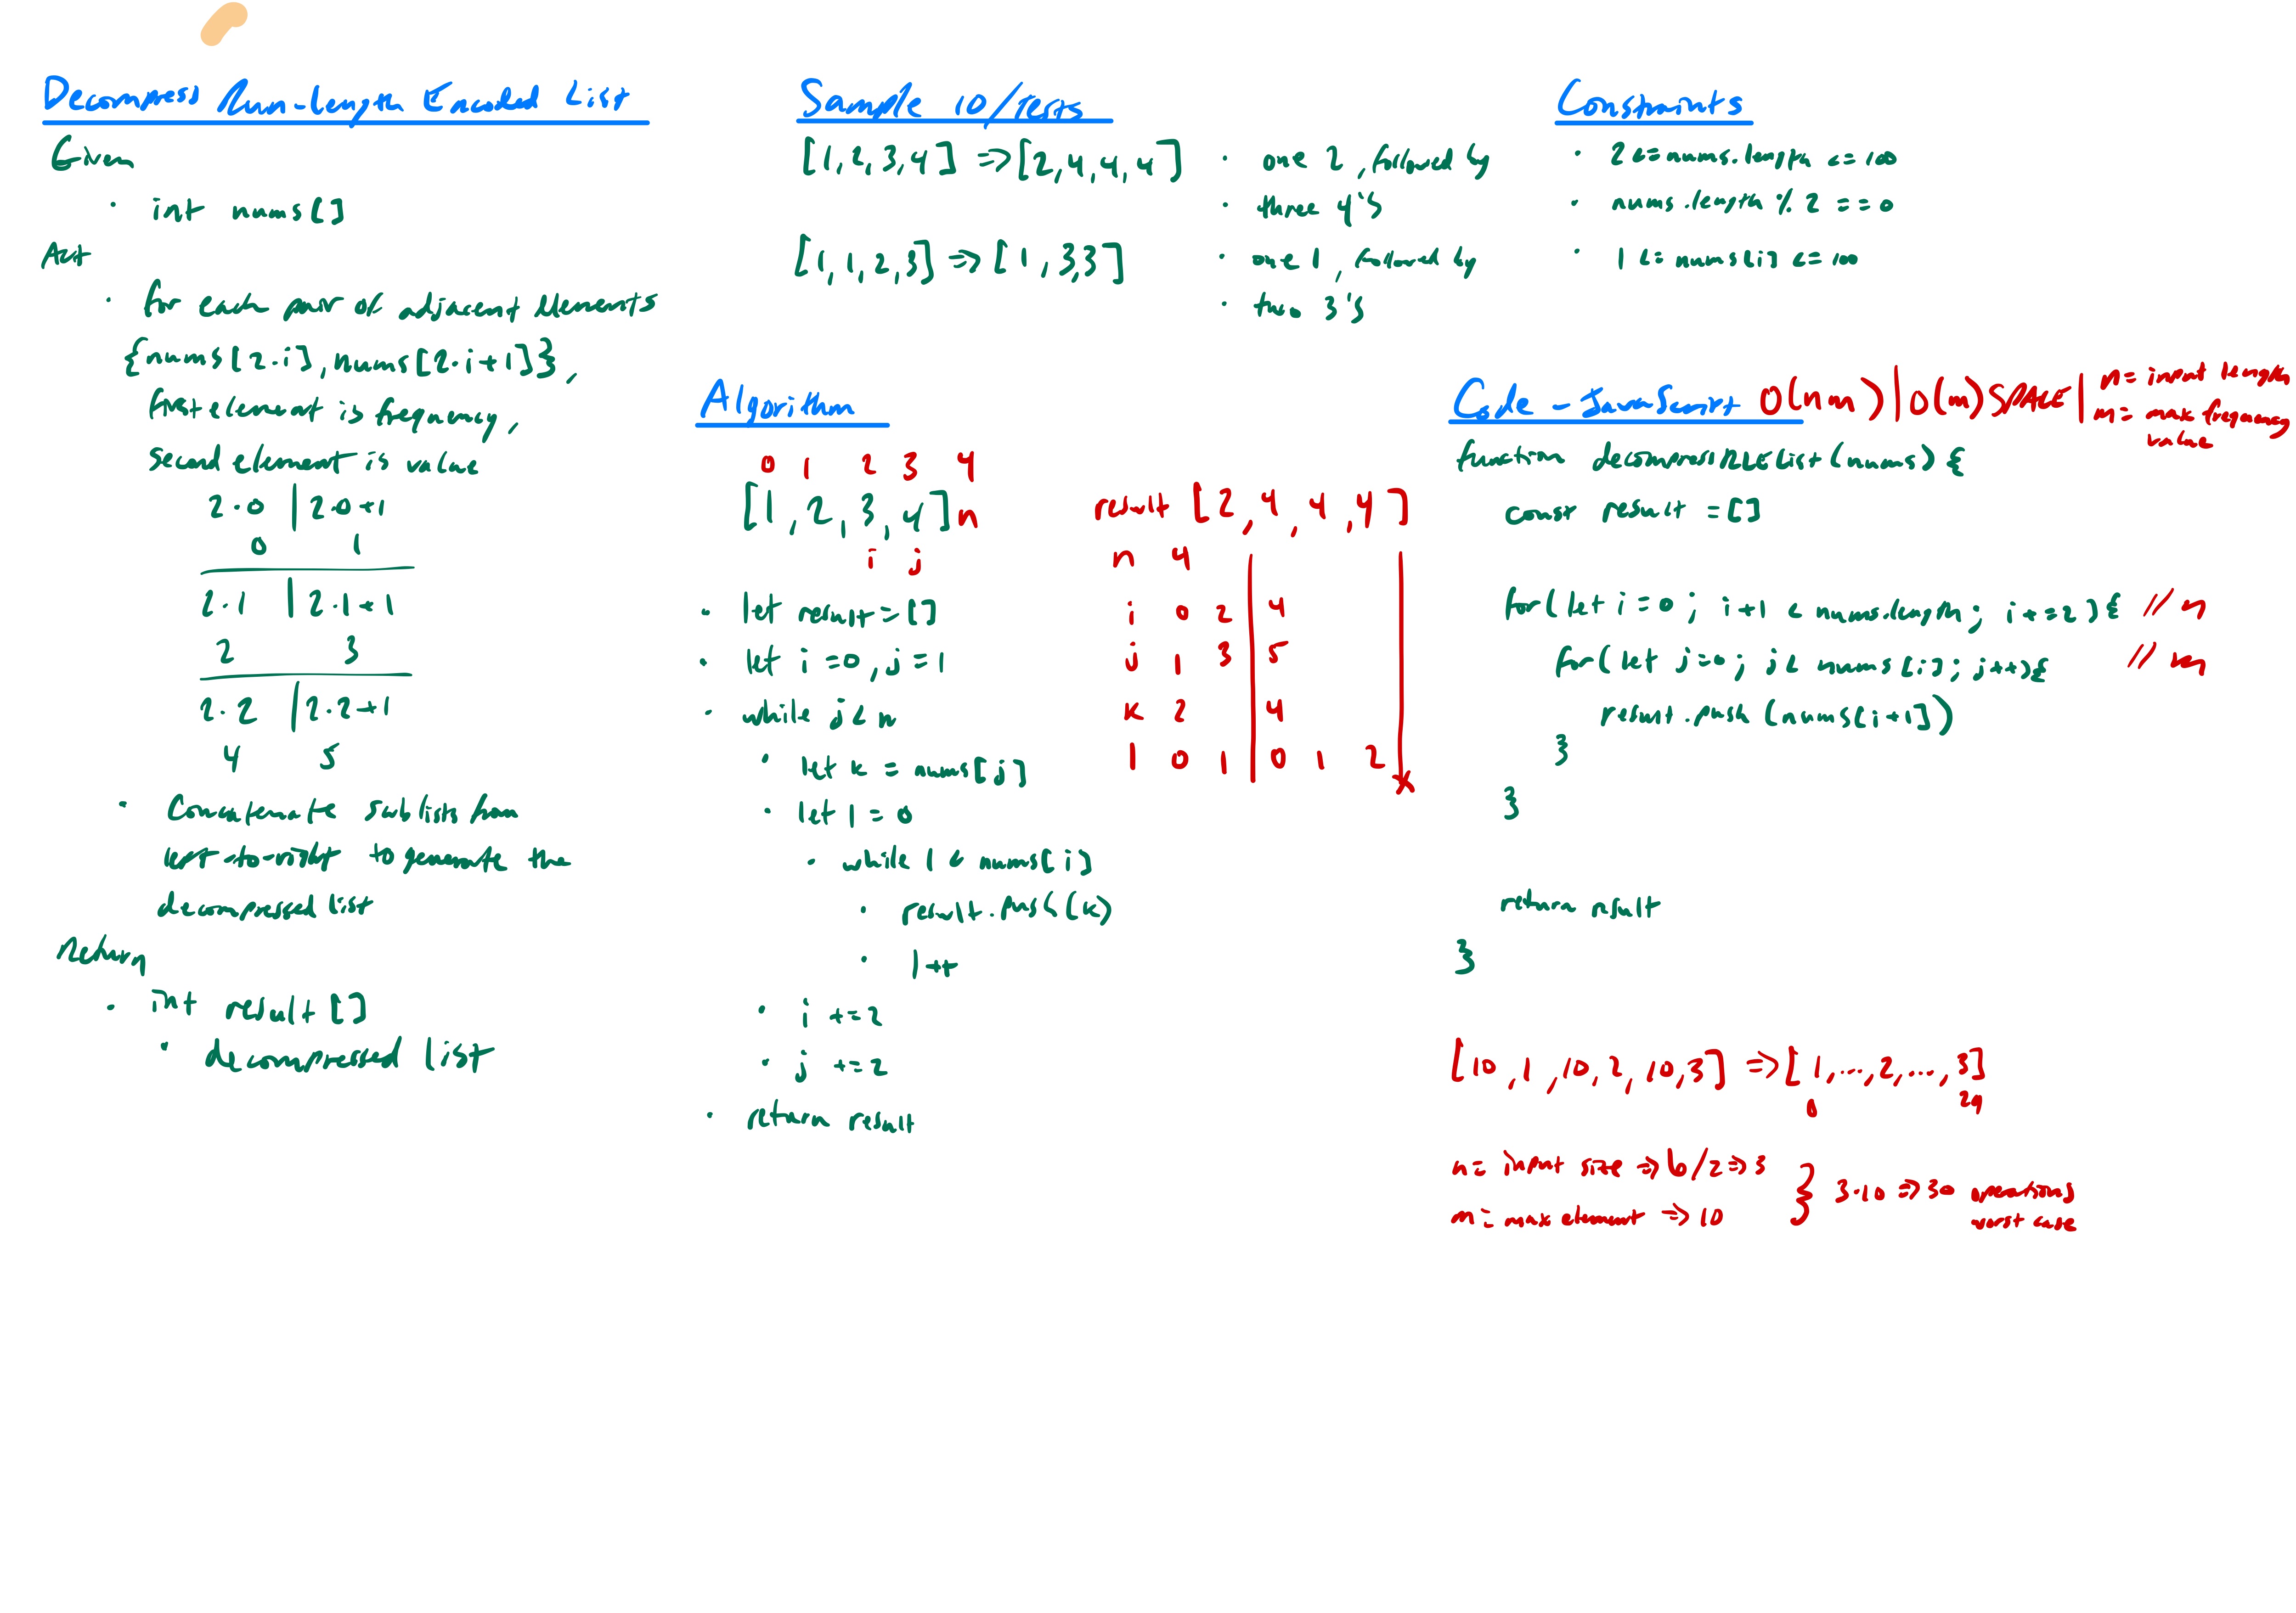 Decompress Run-Length Encoded List
Given
· int nums[]
Act
· for each pair of adjacent elements
{nums[2·i], nums[2·i+1]},
first element is frequency,
second element is value
2·0 | 2·0+1
0 1
2·1 | 2·1+1
2 3
2·2 | 2·2+1
4 5
· Concatenate sublists from
left-to-right to generate the
decompressed list
Return
· int result[]
· decompressed list
Sample IO/Tests
[1,2,3,4] => [2,4,4,4]
· one 2, followed by
· three 4's
[1,1,2,3] => [1,3,3]
· one 1, followed by
· two 3's
Constraints
· 2 <= nums.length <= 100
· nums.length % 2 == 0
· 1 <= nums[i] <= 100
Algorithm
0 1 2 3 4
[1,2,3,4] n
i j
· let result = []
· let i = 0, j = 1
· while j < n
· let k = nums[j]
· let l = 0
· while l < nums[i]
· result.push(k)
· l++
· i += 2
· j += 2
· return result
result [2,4,4,4]
n 4
i 0 2 4
j 1 3 5
k 2 4
l 0 1 0 1 2
Code - JavaScript O(nm) | O(m) SPACE | n = input length
m = max frequency
value
function decompressRLEList(nums) {
const result = []
for(let i = 0; i+1 < nums.length; i += 2){ // n
for(let j=0; j < nums[i]; j++){ // m
result.push(nums[i+1])
}
}
return result
}
[10,1,10,2,10,3] => [1,...,2,...,3]
0 29
n = input size => 6/2 => 3
m = max element => 10
} 3·10 => 30 operations
worst case